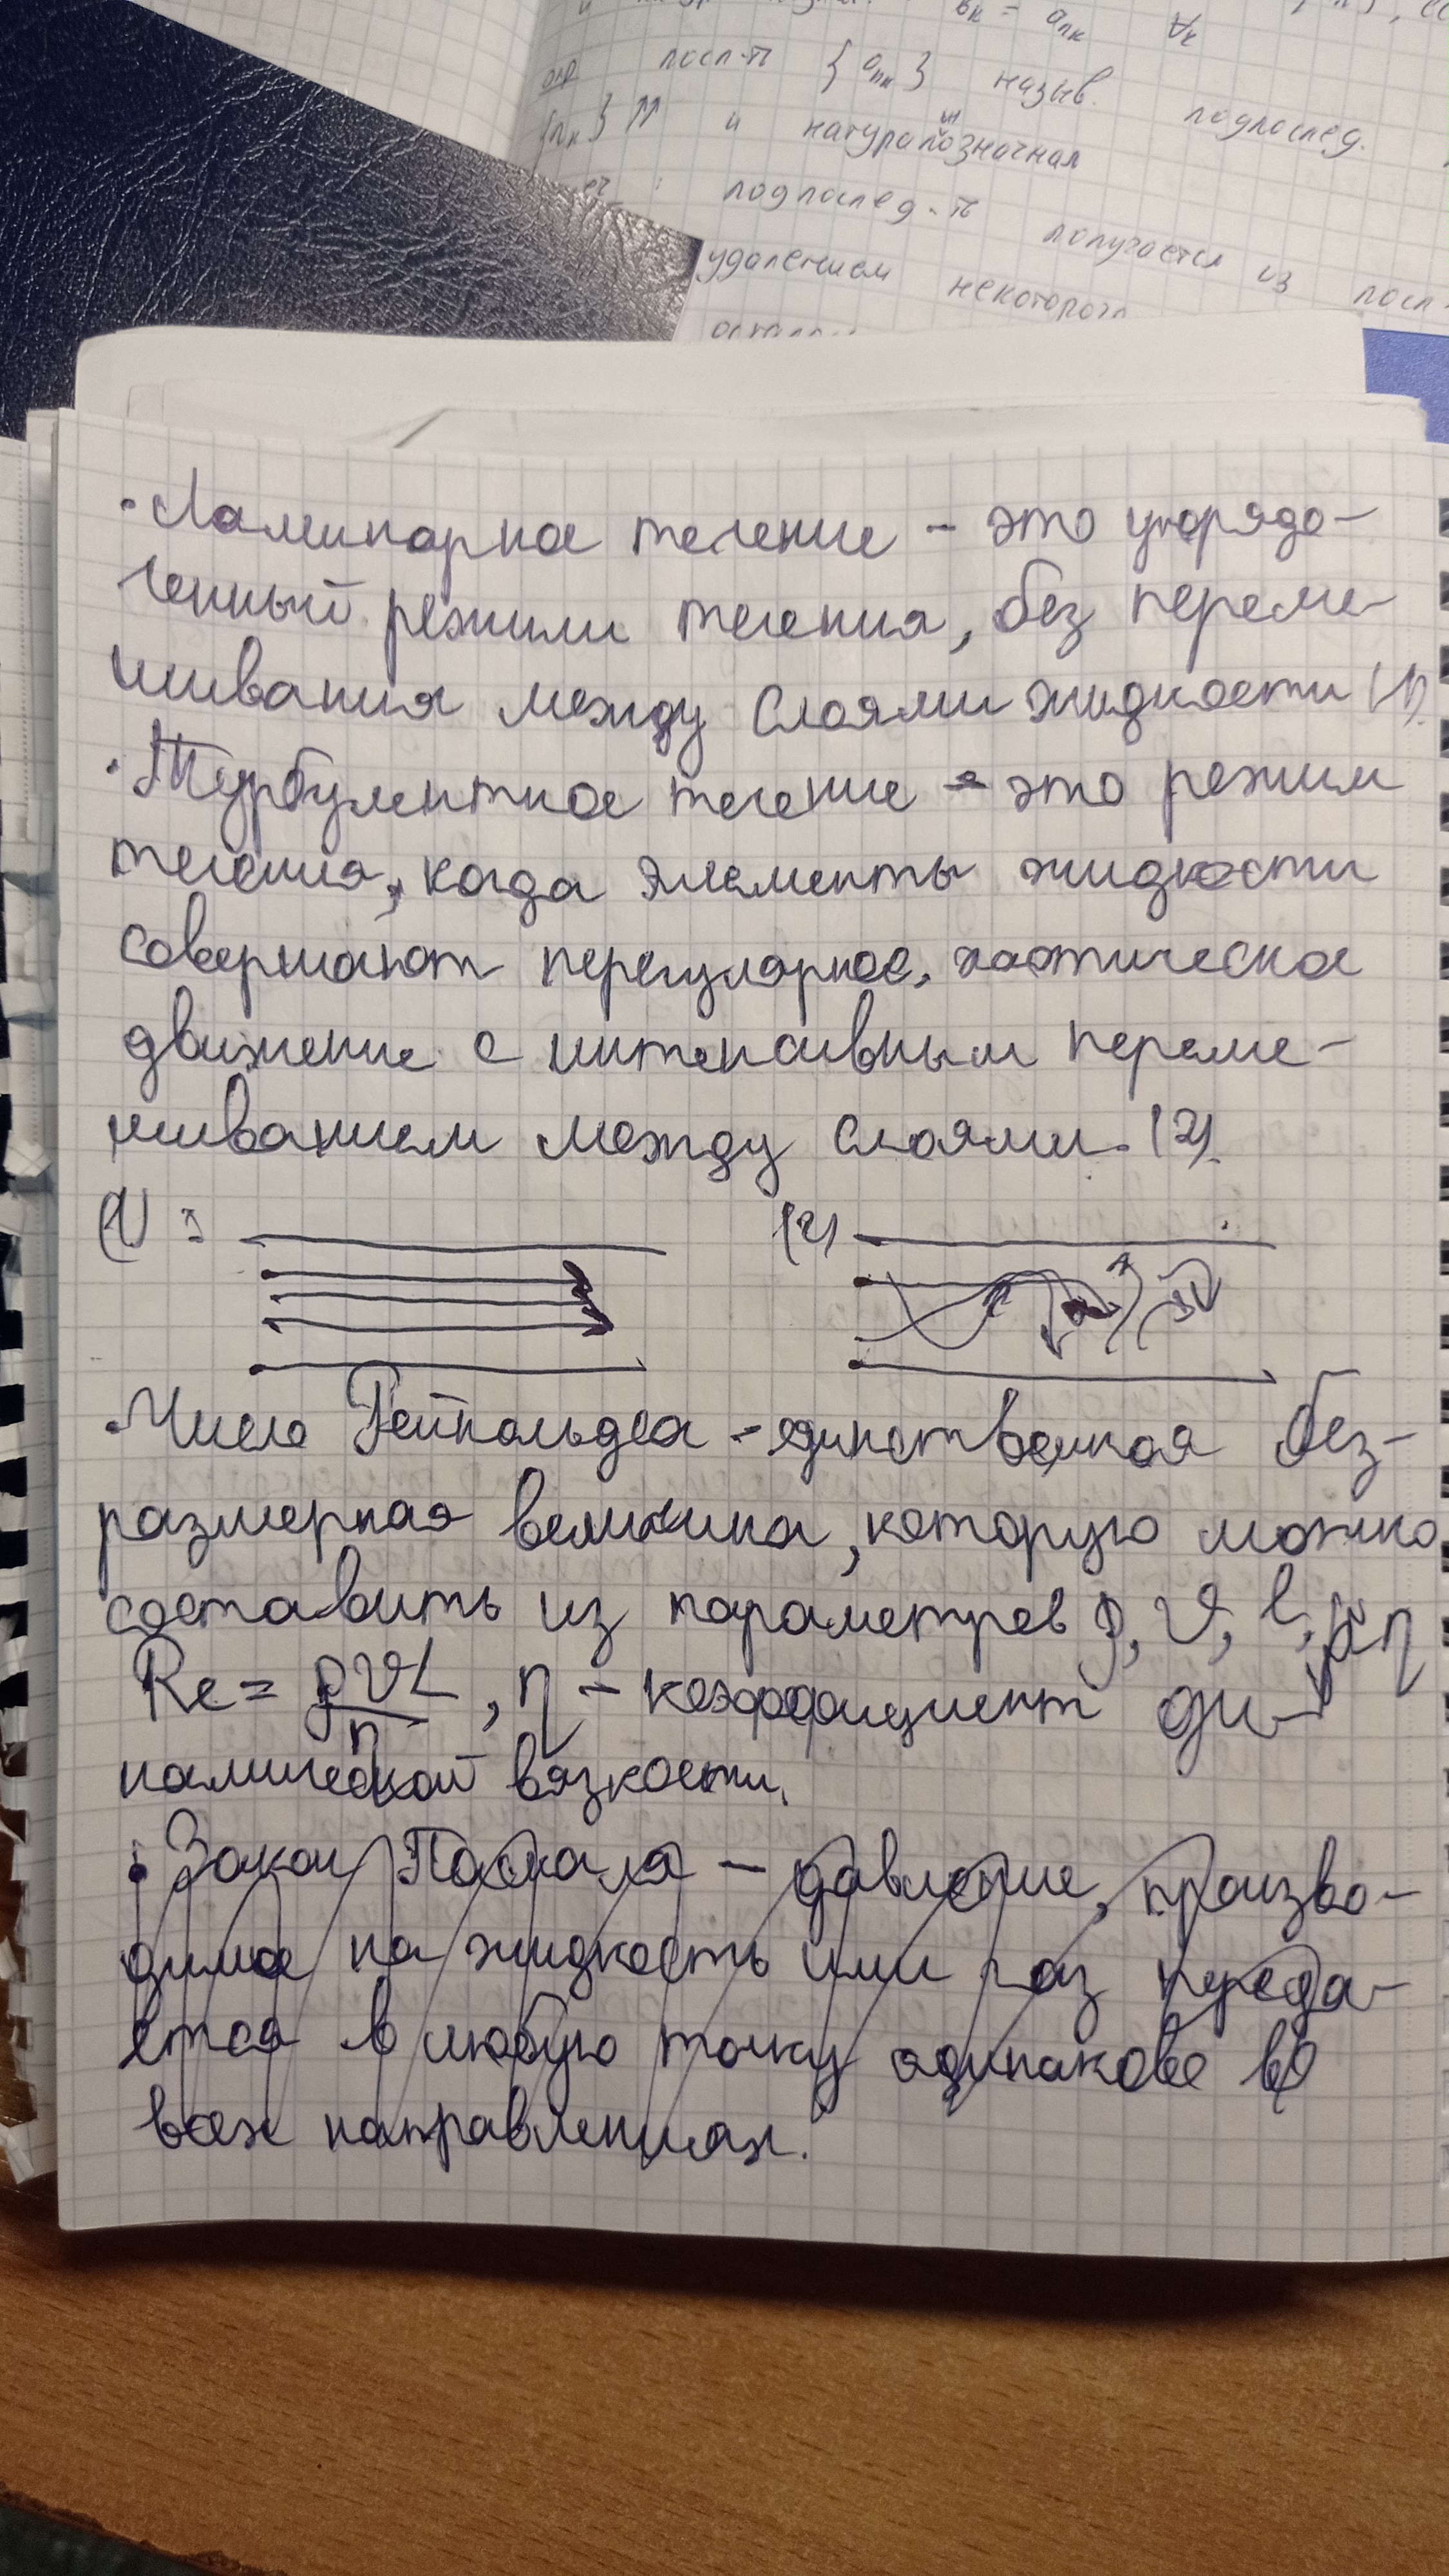 и
bк = aпк ∀к
опр посл-ть {aпк} назыв. подпослед.
{пк} ⇈ и натуралозначная
подпослед-ть получается из посл-
удалением некоторого
· Ламинарное течение – это упорядо-
ченный режим течения, без переме-
шивания между слоями жидкости (1).
· Турбулентное течение – это режим
течения, когда элементы жидкости
совершают нерегулярное, хаотическое
движение с интенсивным переме-
шиванием между слоями. (2).
(1): (2)
· Число Рейнольдса – единственная без-
размерная величина, которую можно
составить из параметров ρ, υ, l, η
Re = ρυL/η, η – коэффициент ди-
намической вязкости.
· Закон Паскаля – давление, произво-
димое на жидкость или газ переда-
ется в любую точку одинаково во
всех направлениях.